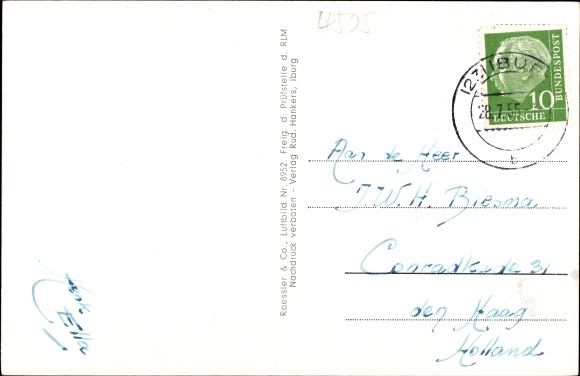 4525
Roessler & Co., Luftbild Nr. 8952. Freig. d. Prüfstelle d. RLM
Nachdruck verboten - Verlag Rud. Hankers, Iburg
BUNDESPOST
10
DEUTSCHE
IBU
28.7.55
b
Aan de Heer
J.W.H. Biesma
Conradkade 31
den Haag
Holland
Ella